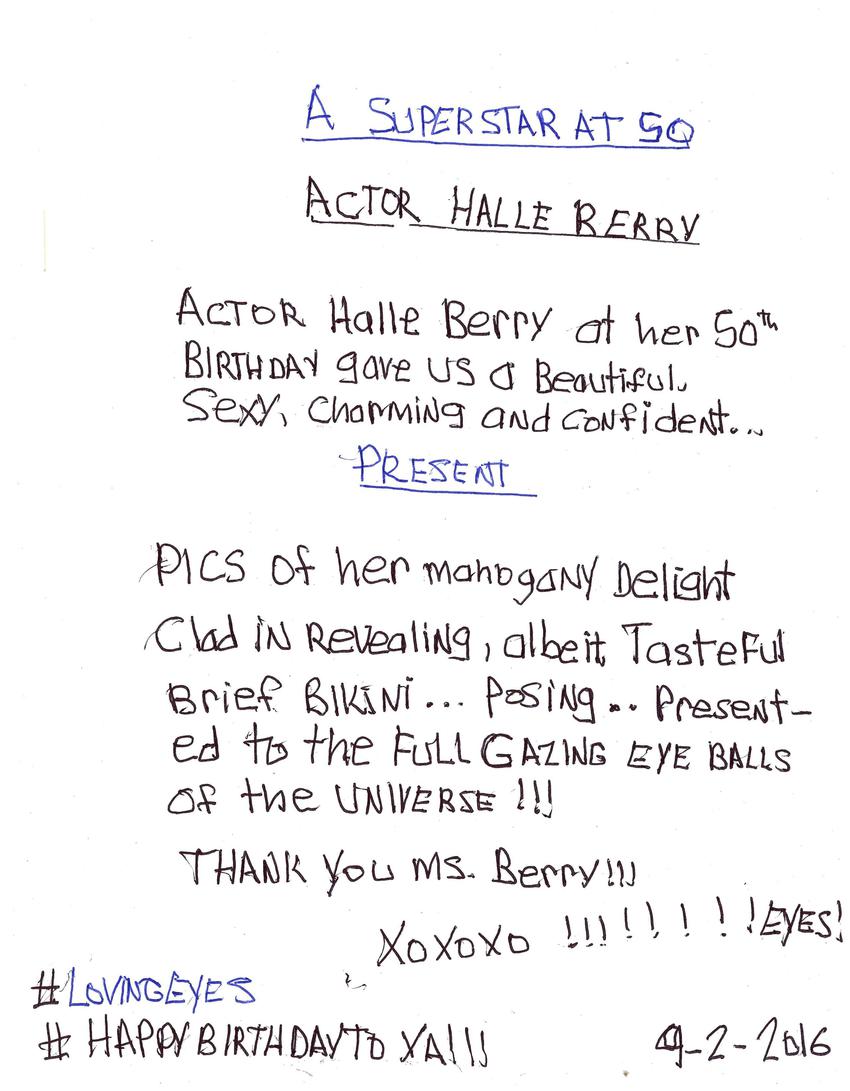 A SUPERSTAR AT 50
ACTOR HALLE BERRY
ACTOR Halle Berry at her 50th
BIRTHDAY gave US a Beautiful.
Sexy, Charming and confident...
PRESENT
PICS of her mahogany Delight
Clad IN Revealing, albeit, Tasteful
Brief BIKINI... Posing... Present-
ed to the FULL GAZING EYE BALLS
of the UNIVERSE !!!
THANK You Ms. Berry!!!
XOXOXO !!! ! ! ! ! ! EYES!
#LOVINGEYES
# HAPPY BIRTHDAY TO YA!!!
9-2-2016